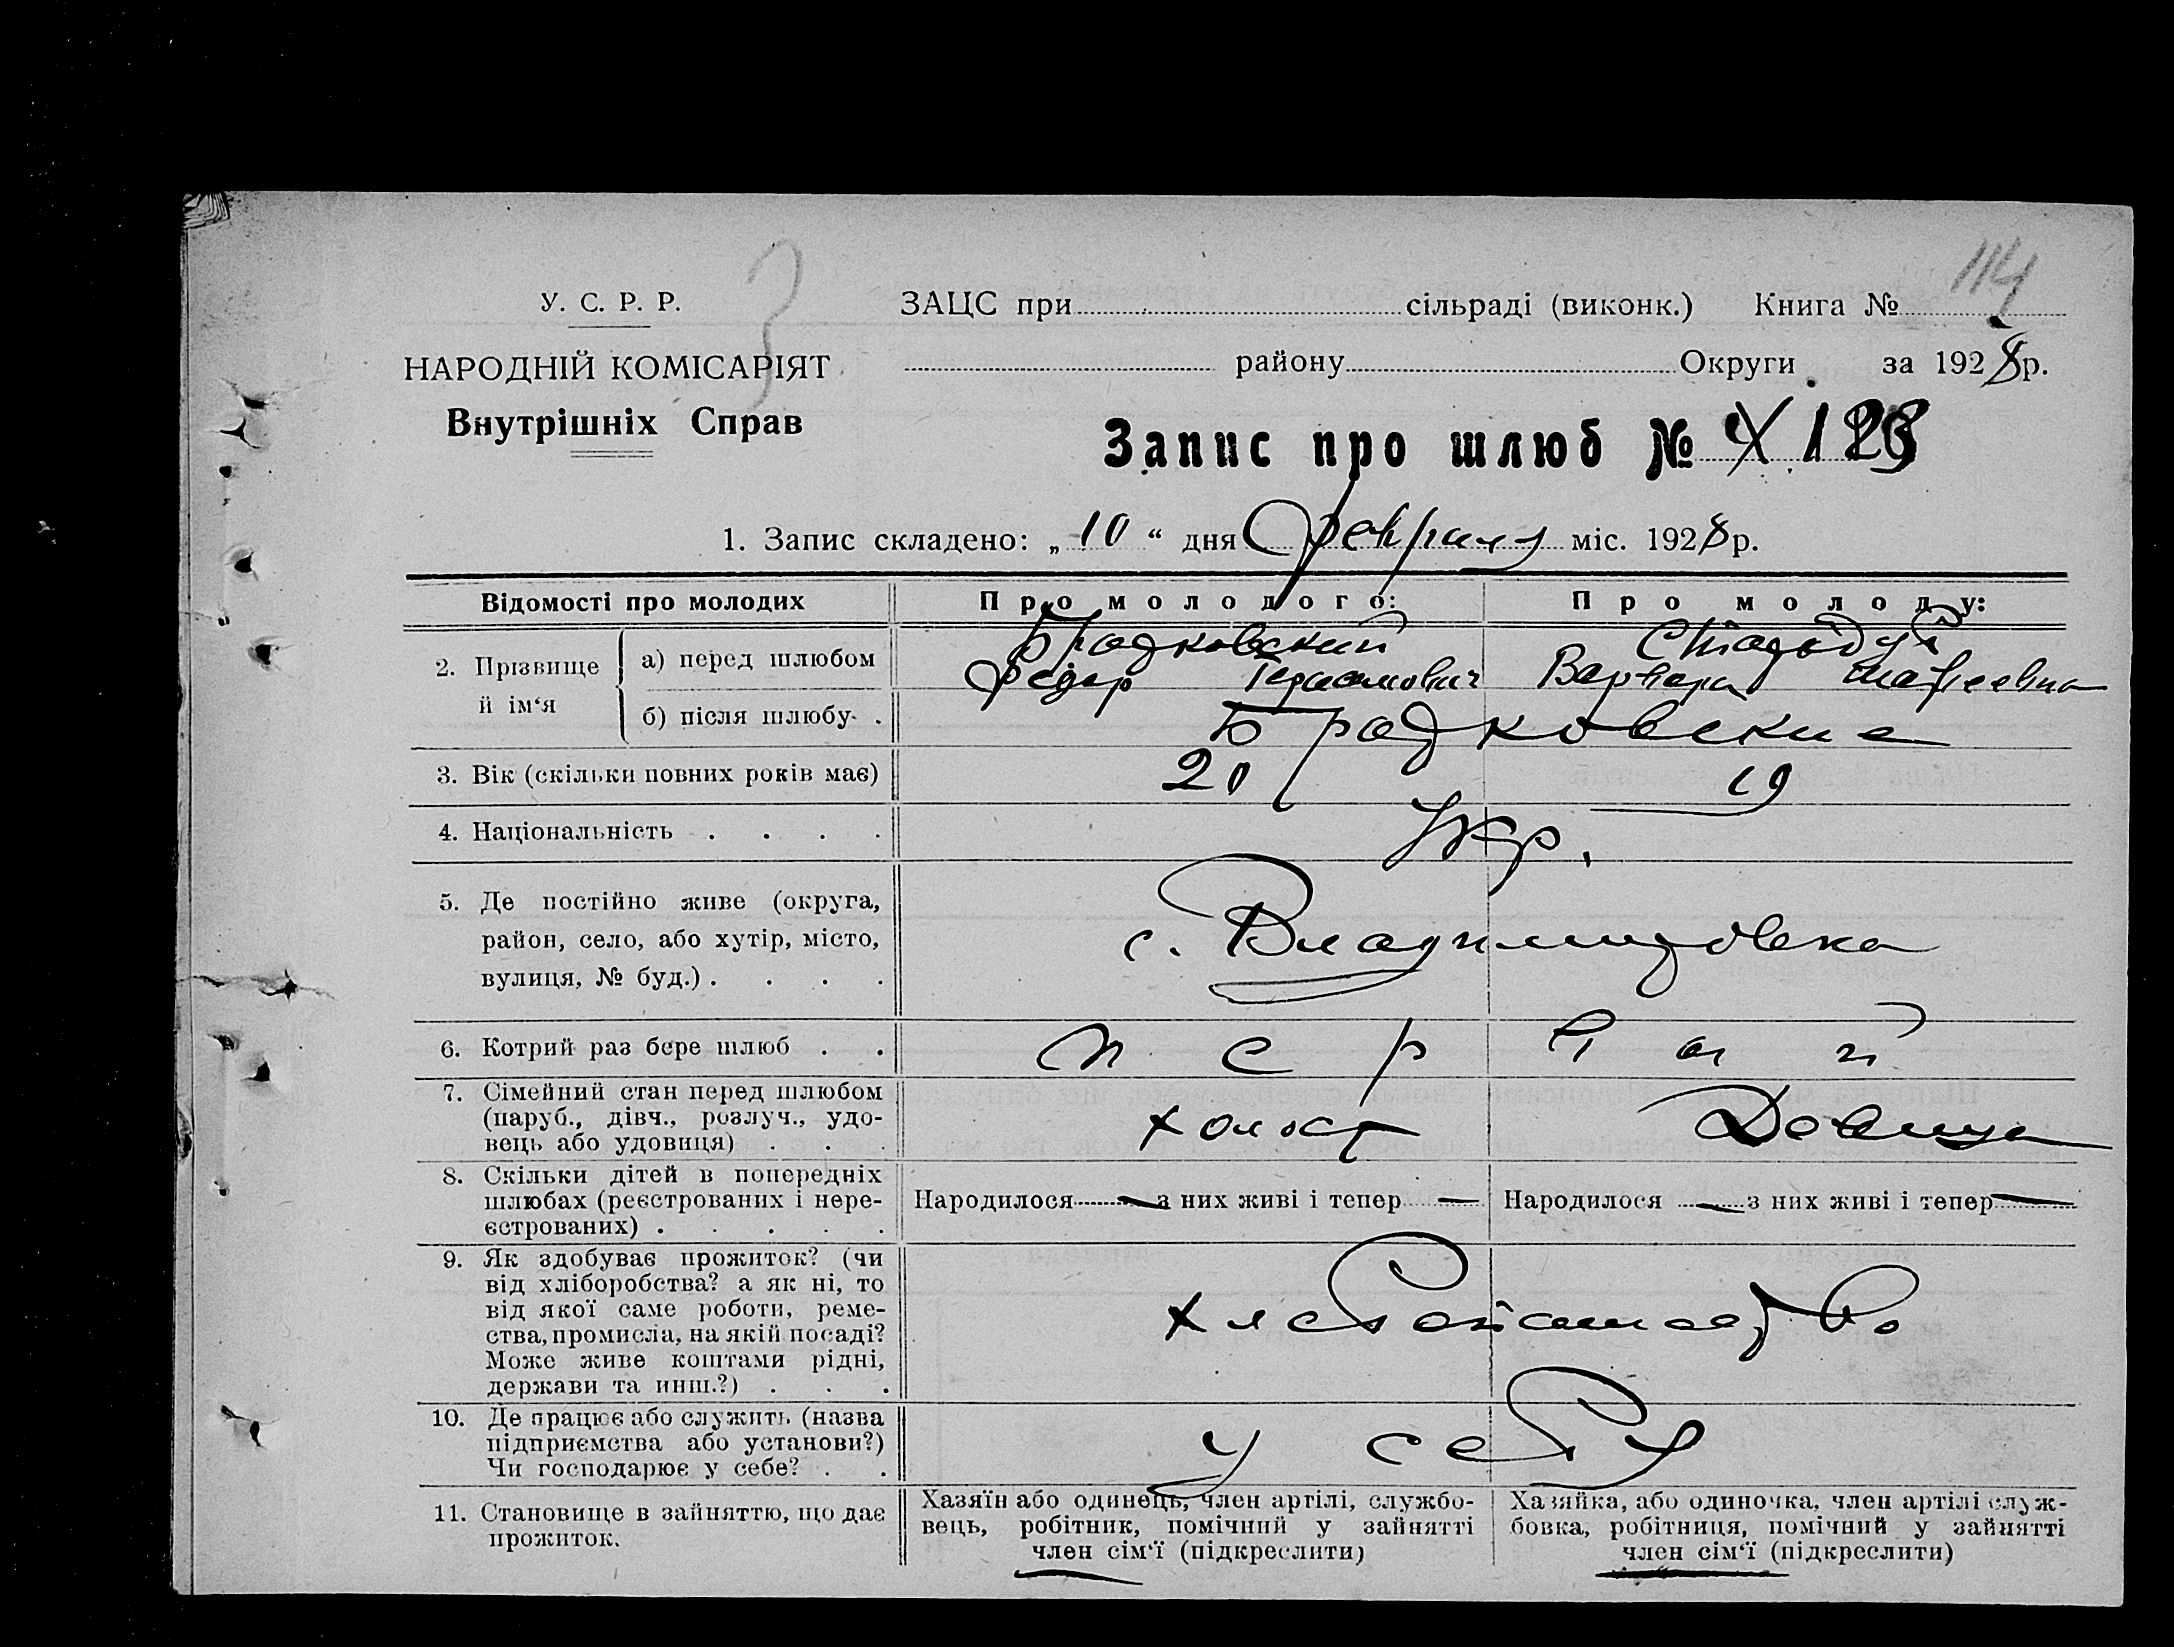 3
114
У. С. Р. Р.
ЗАЦС при сільраді (виконк.) Книга №
НАРОДНІЙ КОМІСАРІЯТ
району Округи за 1928 р.
Внутрішніх Справ
Запис про шлюб № 123
1. Запис складено: „10“ дня Февраля міс. 1928 р.
Відомості про молодих Про молодого: Про молоду:
2. Прізвище й ім‘я
а) перед шлюбом
Бродковский
Федор Герасимович
Варвара
б) після шлюбу .
Бродковские
3. Вік (скільки повних років має) 20 19
4. Національність . . . . Укр.
5. Де постійно живе (округа,
район, село, або хутір, місто,
вулиця, № буд.) . . . .
с. Владимировка
6. Котрий раз бере шлюб . . первый
7. Сімейний стан перед шлюбом
(паруб., дівч., розлуч., удо-
вець або удовиця) . . .
холост Девица
8. Скільки дітей в попередніх
шлюбах (реєстрованих і нере-
єстрованих) . . . . .
Народилося — з них живі і тепер —
Народилося — з них живі і тепер —
9. Як здобуває прожиток? (чи
від хліборобства? а як ні, то
від якої саме роботи, реме-
ства, промисла, на якій посаді?
Може живе коштами рідні,
держави та инш.?) . . .
хлебопашество
10. Де працює або служить (назва
підприємства або установи?)
Чи господарює у себе? . .
у себя
11. Становище в зайняттю, що дає
прожиток.
Хазяїн або одинець, член артілі, службо-
вець, робітник, помічний у зайнятті
член сім‘ї (підкреслити)
Хазяйка, або одиночка, член артілі служ-
бовка, робітниця, помічний у зайнятті
член сім‘ї (підкреслити)